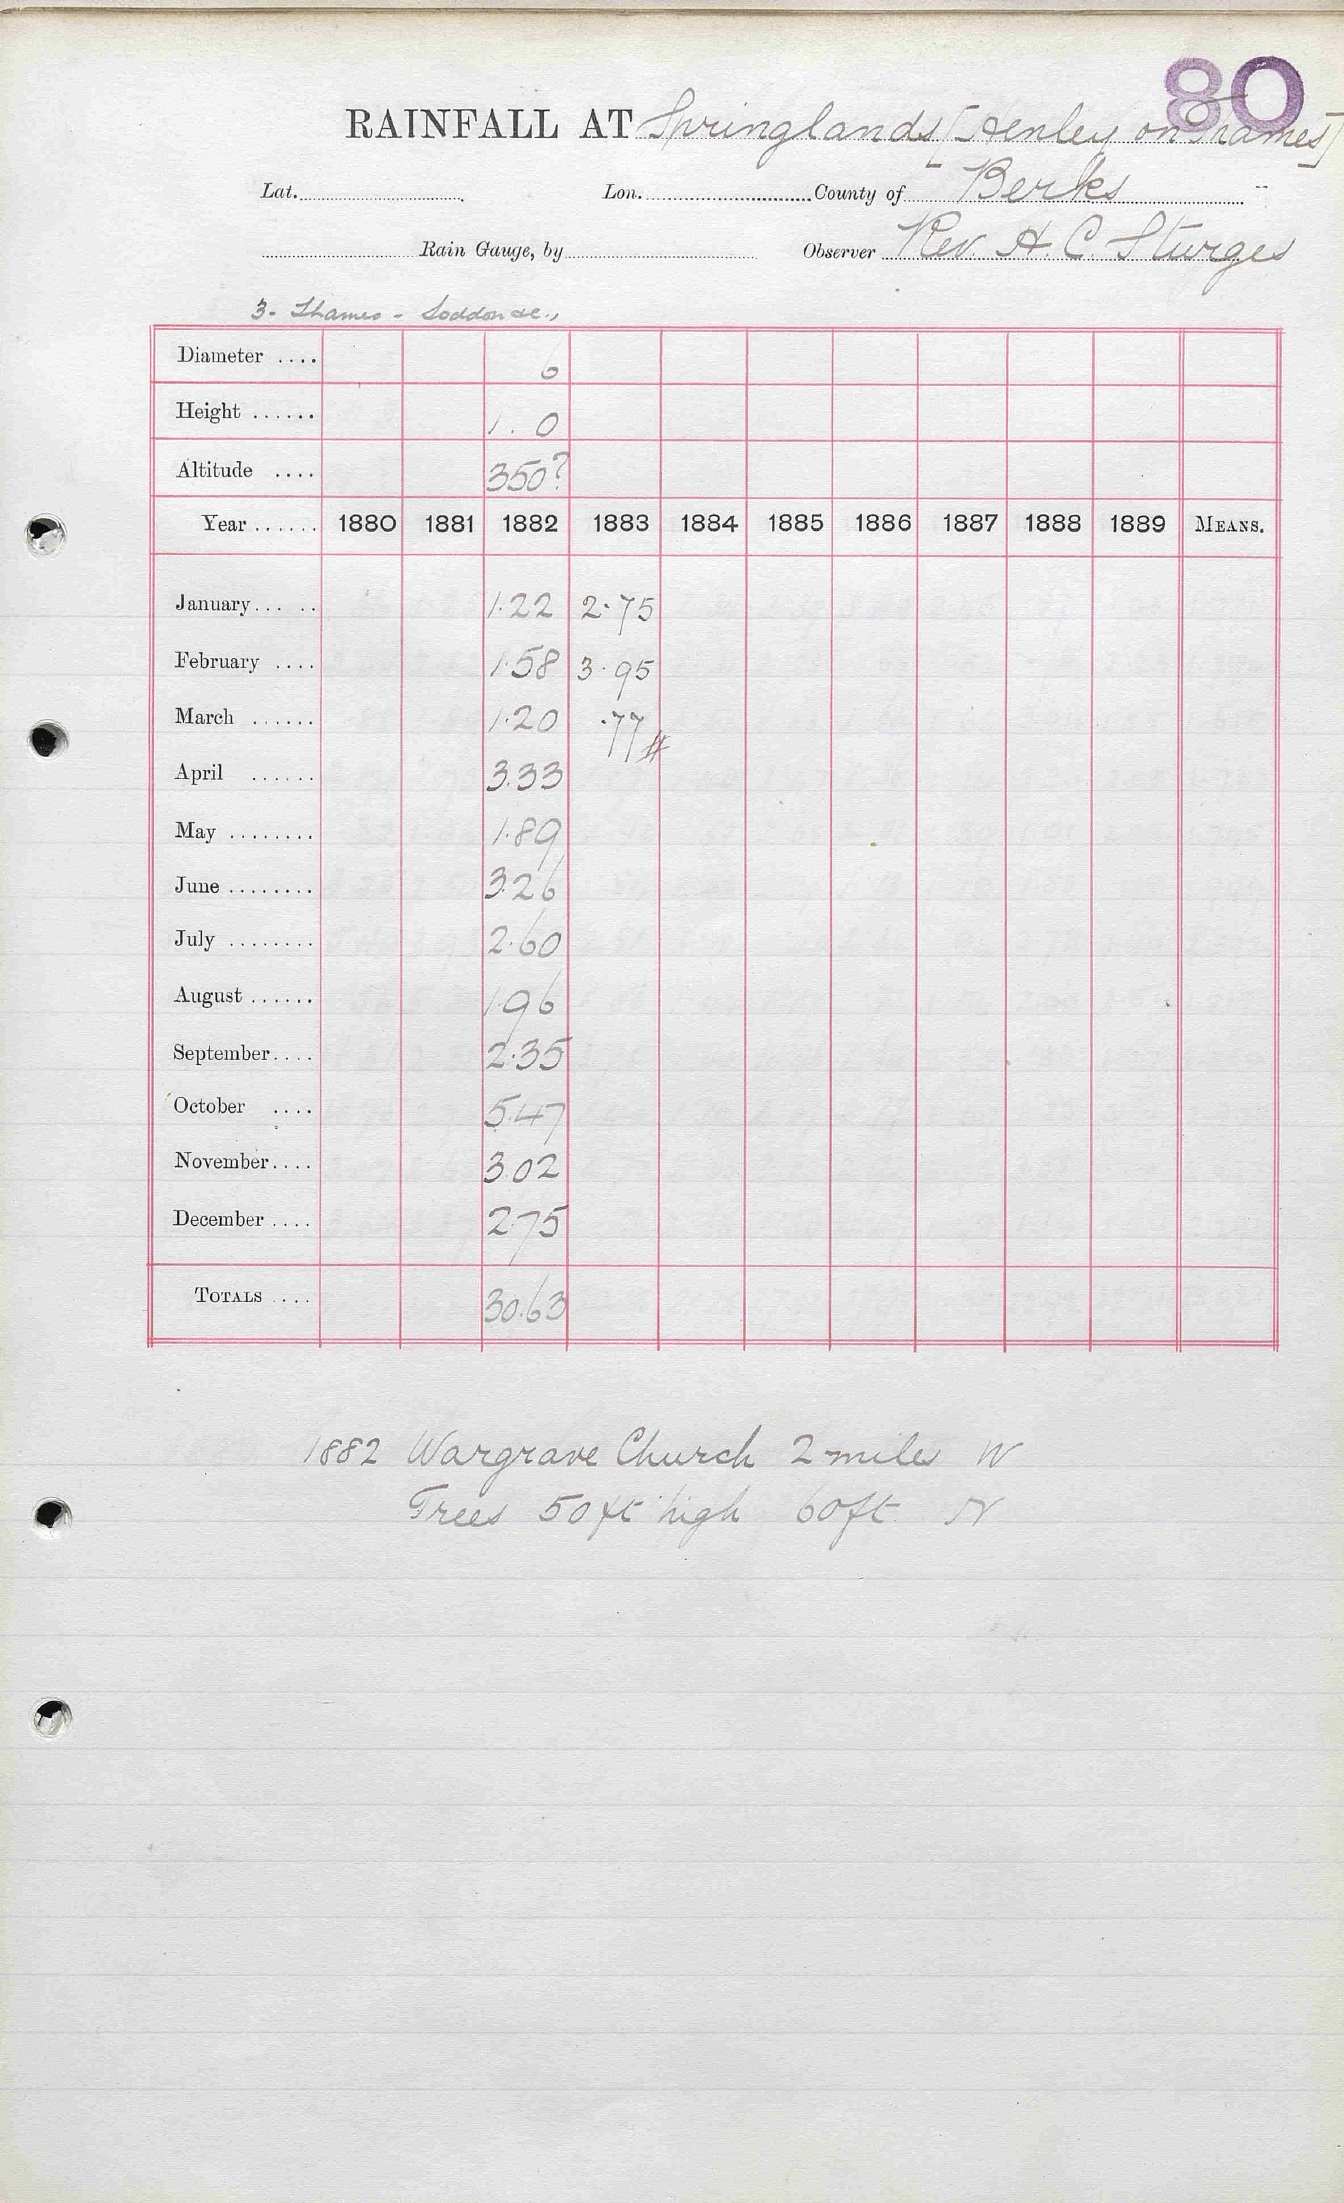 80
RAINFALL AT Springlands [Henley on Thames]
Lat. Lon. County of Berks
Rain Gauge, by Observer Rev. H. C. Sturges
3. Thames - Loddon &c.,
Diameter .... 6
Height ...... 1. 0
Altitude .... 350?
Year ...... 1880 1881 1882 1883 1884 1885 1886 1887 1888 1889 MEANS.
January... .. 1.22 2.75
February .... 1.58 3.95
March ...... 1.20 .77 #
April ...... 3.33
May ........ 1.89
June ........ 3.26
July ........ 2.60
August ...... 1.96
September.... 2.35
October .... 5.47
November.... 3.02
December .... 2.75
TOTALS .... 30.63
1882 Wargrave Church 2 miles W
Trees 50 ft high 60 ft N